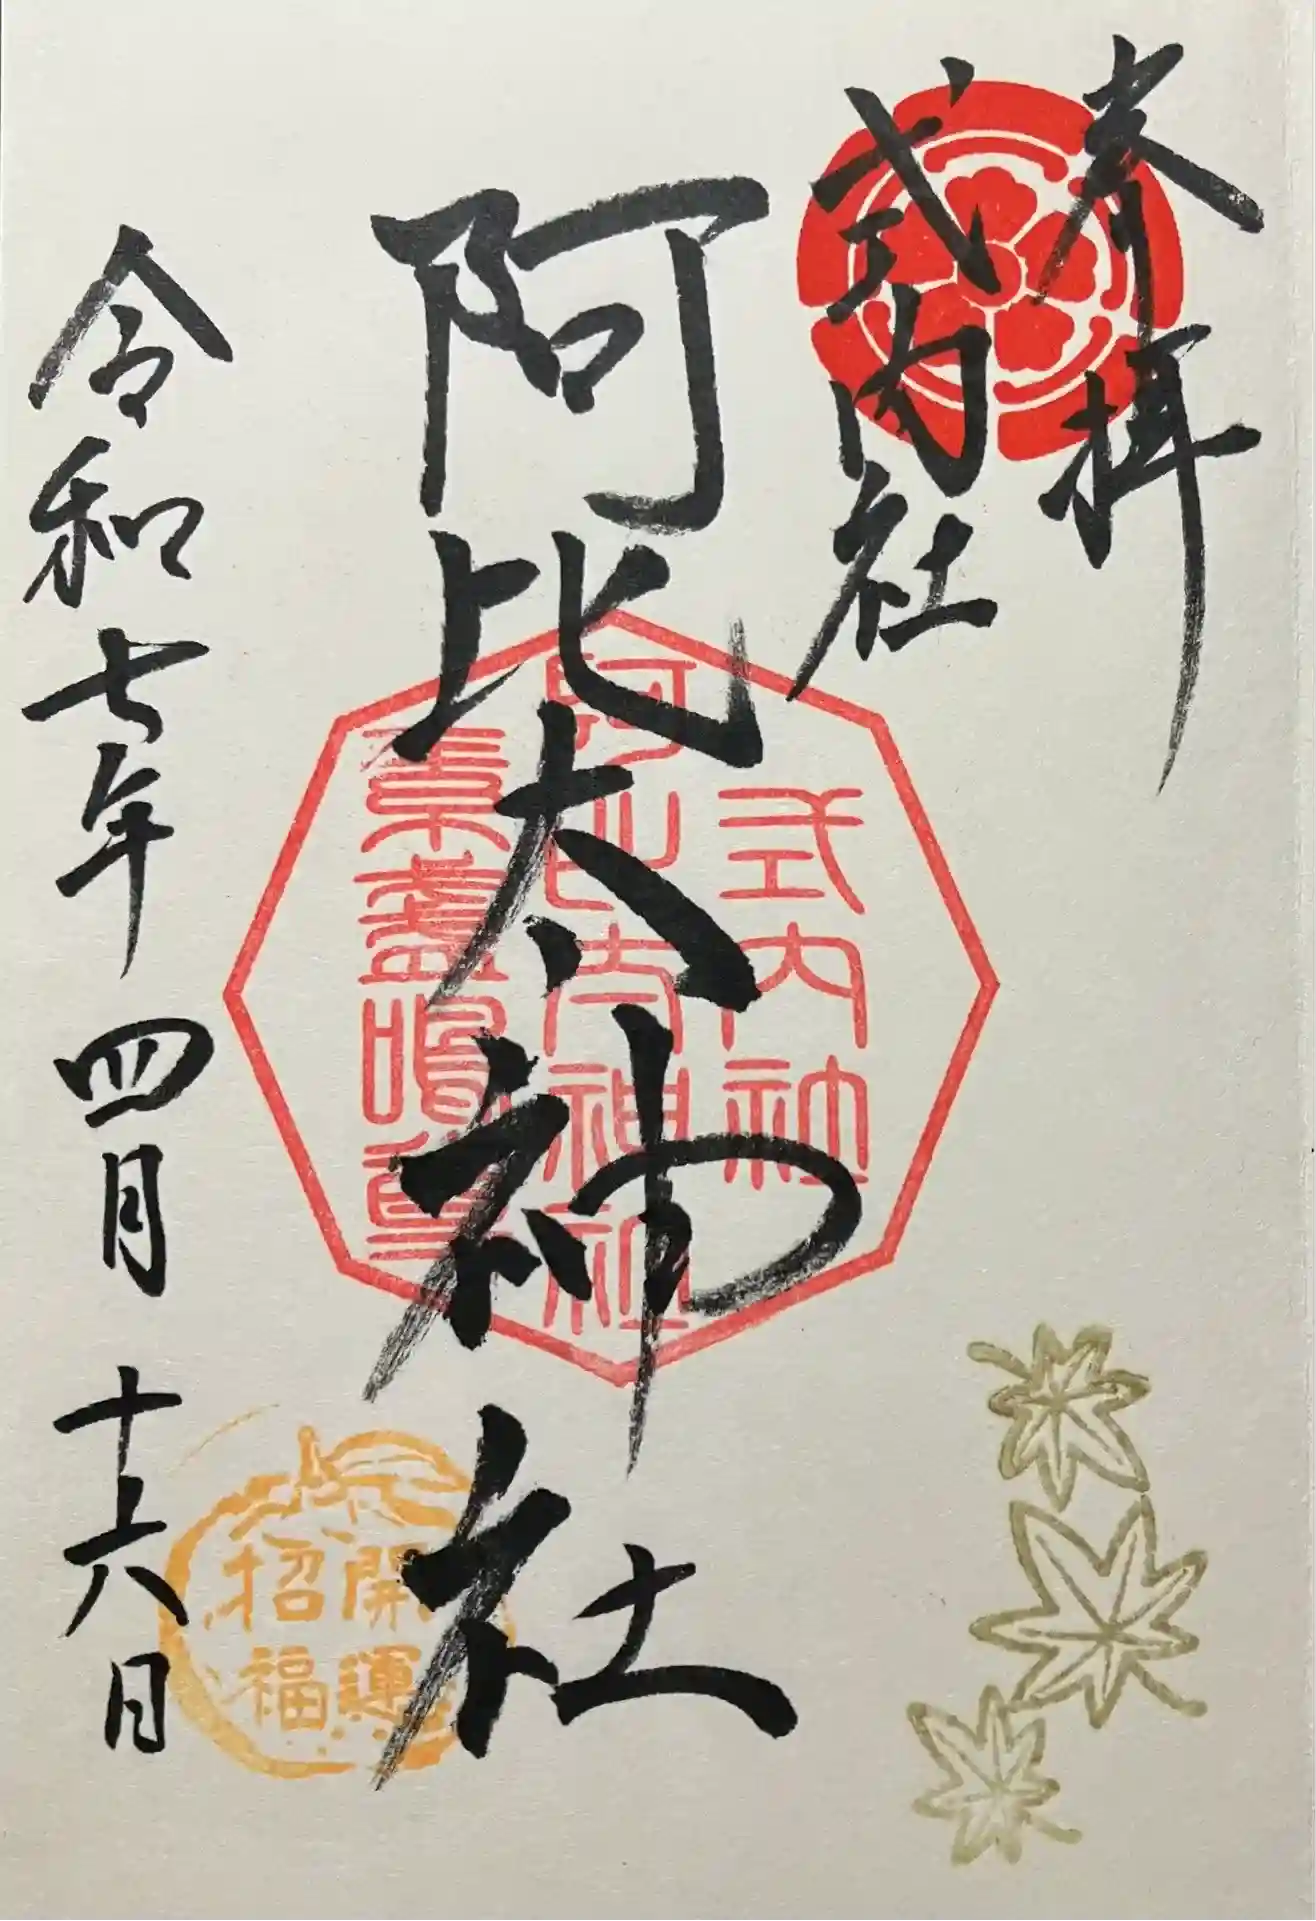 奉拝
式内社
阿比太神社
令和七年四月十六日
式内社
阿比太神社
素盞嗚尊
開運
招福